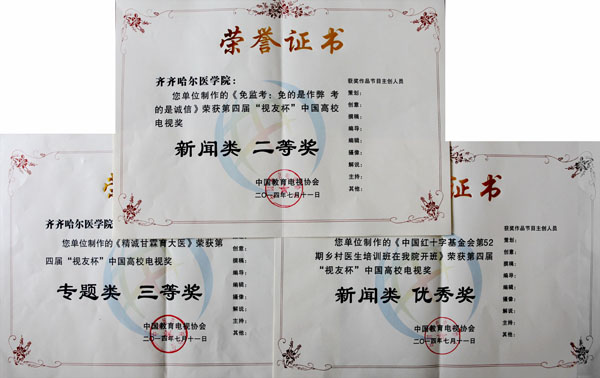 荣誉证书
齐齐哈尔医学院：
您单位制作的《免监考：免的是作弊 考
的是诚信》荣获第四届“视友杯”中国高校
电视奖
新闻类 二等奖
中国教育电视协会
二〇一四年七月十一日
获奖作品节目主创人员
策划：
创意：
撰稿：
编导：
编辑：
摄像：
解说：
主持：
其他：
齐齐哈尔医学院
您单位制作的《精诚甘霖育大医》荣获第
四届“视友杯”中国高校电视奖
专题类 三等奖
中国教育电视协会
二〇一四年七月十一日
创意：
撰稿：
编导：
编辑：
摄像：
解说：
主持：
其他：
证书
您单位制作的《中国红十字基金会第52
期乡村医生培训班在我院开班》荣获第四届
“视友杯”中国高校电视奖
新闻类 优秀奖
中国教育电视协会
二〇一四年七月十一日
获奖作品节目主创人员
策划：
创意：
撰稿：
编导：
编辑：
摄像：
解说：
主持：
其他：